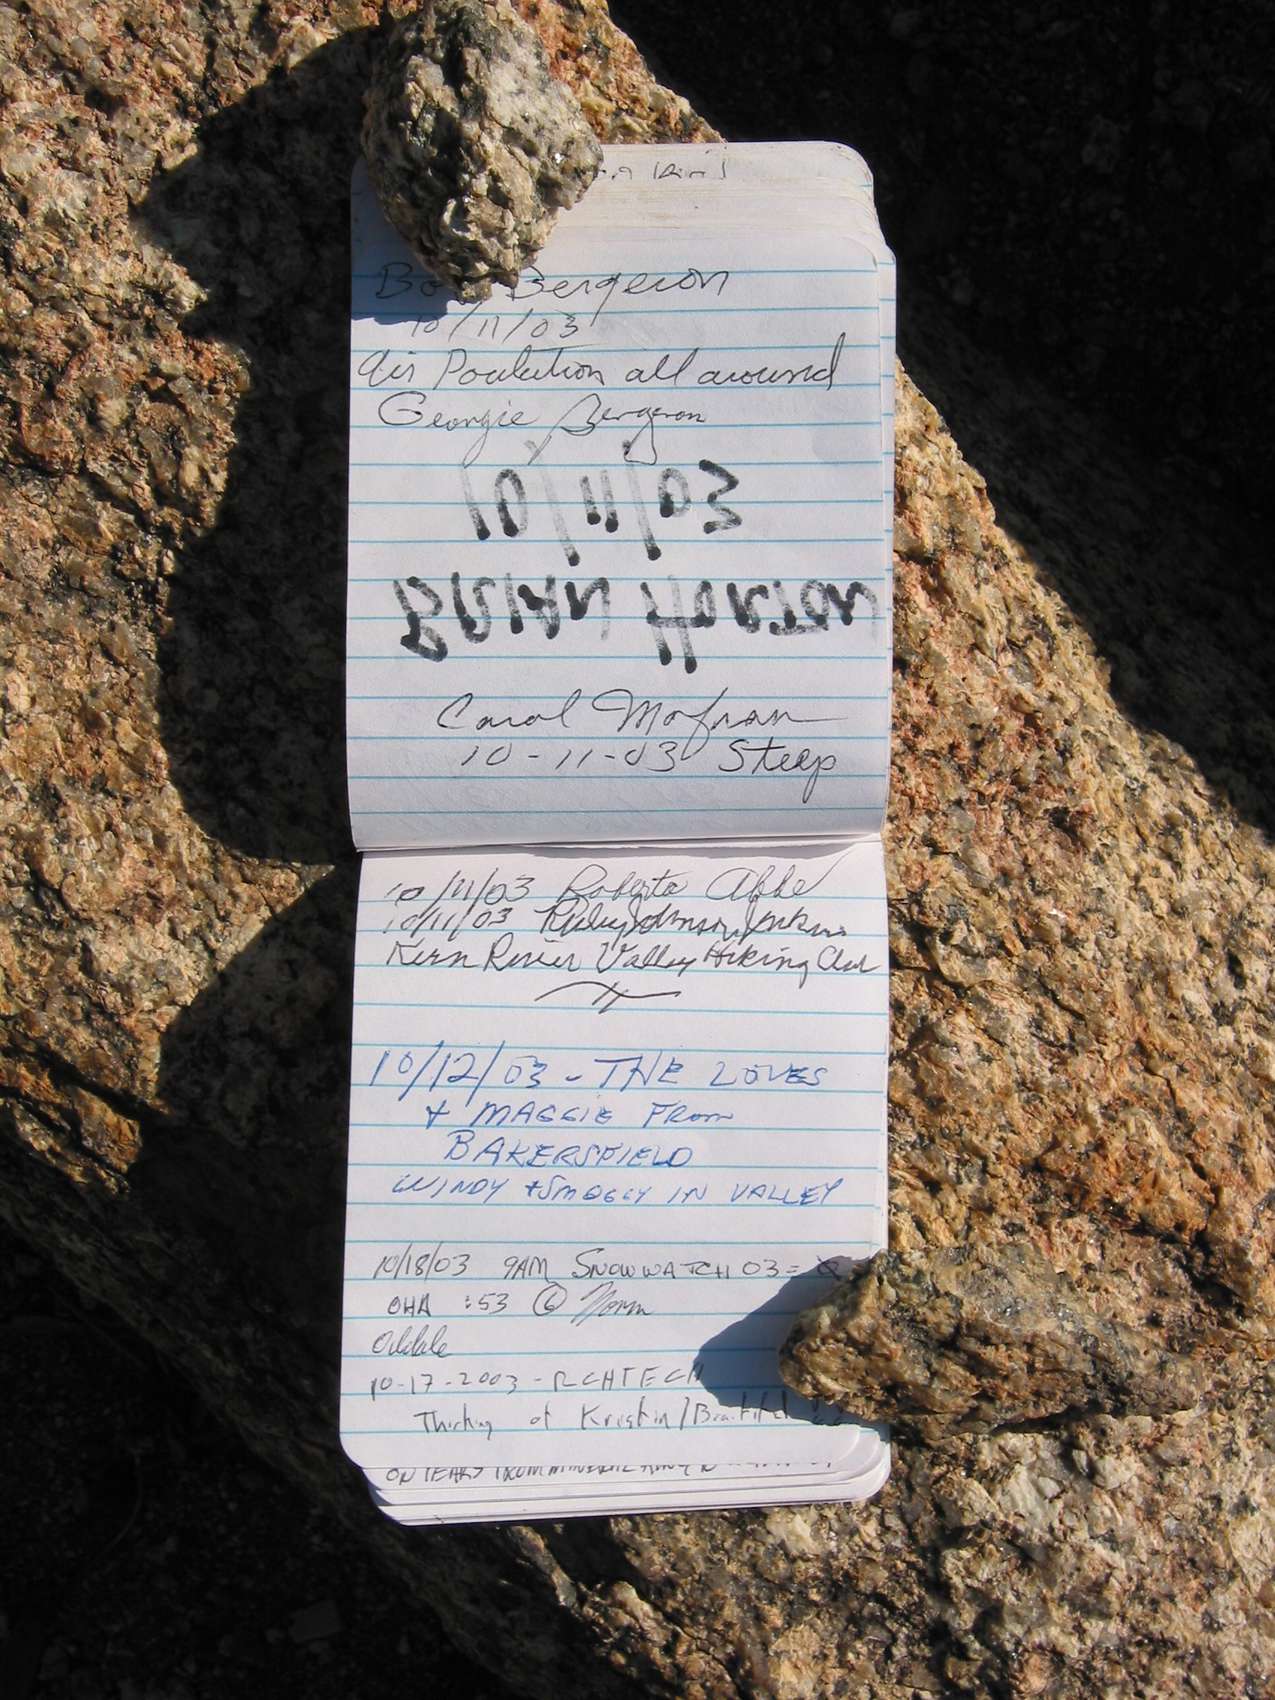 Bergeron
10/11/03
Air Poulution all around
Georgie Bergeron
10/11/03
BRIAN HORTON
Carol
10-11-03 Steep
10/11/03 Roberta
10/11/03
Kern River Valley Hiking Club
10/12/03 - THE LOVES
+ MAGGIE FROM
BAKERSFIELD
WINDY + SMOGGY IN VALLEY
10/18/03 9AM SNOWWATCH 03 =
OHA :53 Norm
10-17-2003 - RCHTECH
Thinking of Kristin/